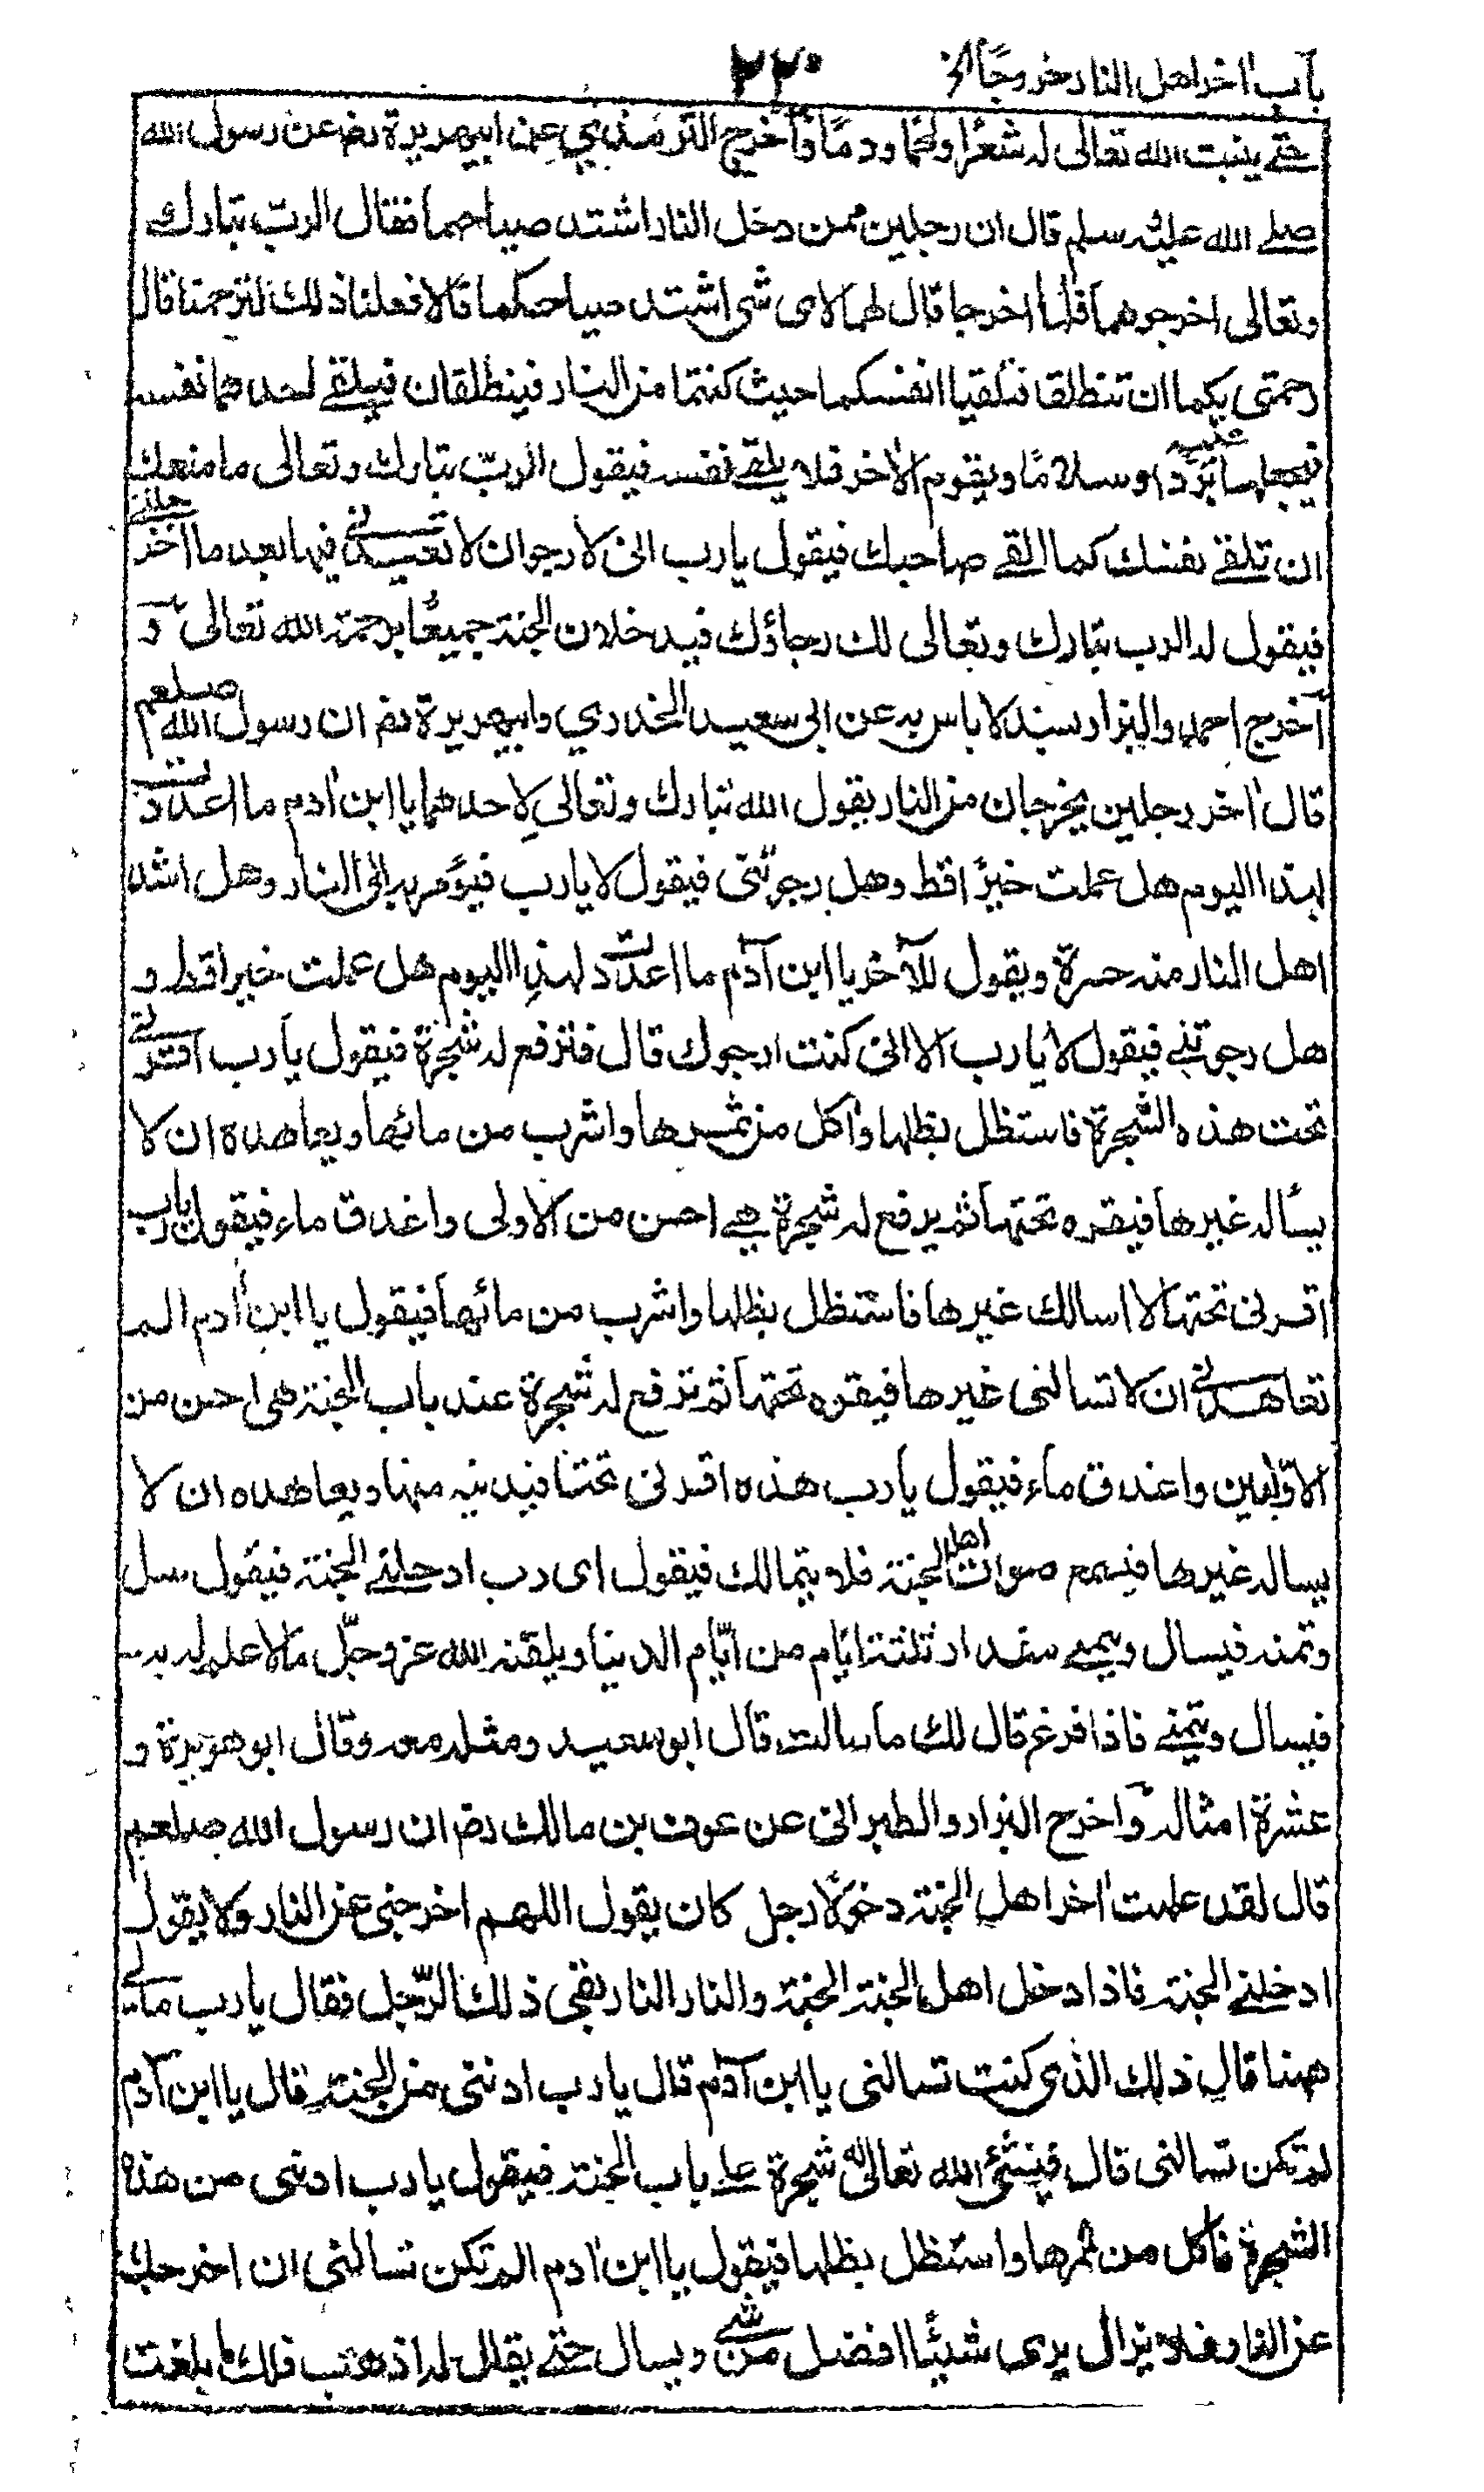 باب اٰخر اهل النار خروجًا الخ ٢٢٠
حتے ينبت الله تعالى له شعرًا ولحمًا ودمًا وأخرج الترمذي عن ابيهريرة رض عن رسول الله
صلے الله عليه وسلم قال ان رجلين ممن دخل النار اشتد صياحهما فقال الرب تبارك
وتعالى اخرجوهما فلما اخرجا قال لهما لاى شى اشتد صياحكما قالا فعلنا ذلك لترحمنا قال
رحمتى بكما ان تنطلقا فتلقيا انفسكما حيث كنتما من النار فينطلقان فيلقے احدهما نفسه
فيجعلها عليه بردًا وسلامًا ويقوم الاٰخر فلا يلقے نفسه فيقول الربّ تبارك وتعالى ما منعك
ان تلقے نفسك كما القے صاحبك فيقول يا رب انى لارجو ان لا تعيدنے فيها بعد ما اخرجتنے
فيقول له الرب تبارك وتعالى لك رجاؤك فيدخلان الجنة جميعًا برحمة الله تعالى و
أخرج احمد والبزار بسند لا باس به عن ابى سعيد الخدري وابيهريرة رض ان رسول الله صلعم
قال اٰخر رجلين يخرجان من النار يقول الله تبارك وتعالى لِاحدهما يا ابن اٰدم ما اعددت
لهذا اليوم هل عملت خيرًا قط وهل رجوتنى فيقول لا يا رب فيؤمر به الى النار وهل اشد
اهل النار منه حسرة ويقول للآخر يا ابن آدم ما اعددت لهذا اليوم هل عملت خيرا قط و
هل رجوتنے فيقول لا يا رب الا انى كنت ارجوك قال فترفع له شجرة فيقول يا رب اقرنے
تحت هذه الشجرة فاستظل بظلها واٰكل من ثمرها واشرب من مائها ويعاهده ان لا
يسأله غيرها فيقره تحتها ثم يرفع له شجرة هے احسن من الاولى واغدق ماء فيقول يا رب
اقرنى تحتها لا اسالك غيرها فاستظل بظلها واشرب من مائها فيقول يا ابن اٰدم الم
تعاهدنے ان لا تسالنى غيرها فيقره تحتها ثم ترفع له شجرة عند باب الجنة هى احسن من
الاوّليين واغدق ماء فيقول يا رب هذه اقرنى تحتها فيدنيه منها ويعاهده ان لا
يساله غيرها فيسمع صوات اهل الجنة فلا يتمالك فيقول اى رب ادخلنے الجنة فيقول سل
وتمنه فيسال ويتمنے مقدار ثلثة ايّام من ايّام الدنيا ويلقنه الله عزوجلّ مالا علم له به
فيسال ويتمنے فاذا فرغ قال لك ما سالت قال ابو سعيد ومثله معه وقال ابو هريرة و
عشرة امثاله وأخرج البزار والطبرانى عن عوف بن مالك رض ان رسول الله صلعم
قال لقد علمت اٰخر اهل الجنة دخولًا رجل كان يقول اللهم اخرجنى عن النار ولا يقول
ادخلنے الجنة فاذا دخل اهل الجنة الجنة والنار النار بقى ذلك الرّجل فقال يا رب مالے
ههنا قال ذلك الذى كنت تسالنى يا ابن آدم قال يا رب ادننى من الجنة قال يا ابن آدم
لم تكن تسالنى قال فينشئ الله تعالى له شجرة علے باب الجنة فيقول يا رب ادننى من هذه
الشجرة فاٰكل من ثمرها واستظل بظلها فيقول يا ابن اٰدم الم تكن تسالنى ان اخرجك
عن النار فلا يزال يرى شيئًا افضل من شے ويسال حتے يقال له اذهب فلك ما بلغت